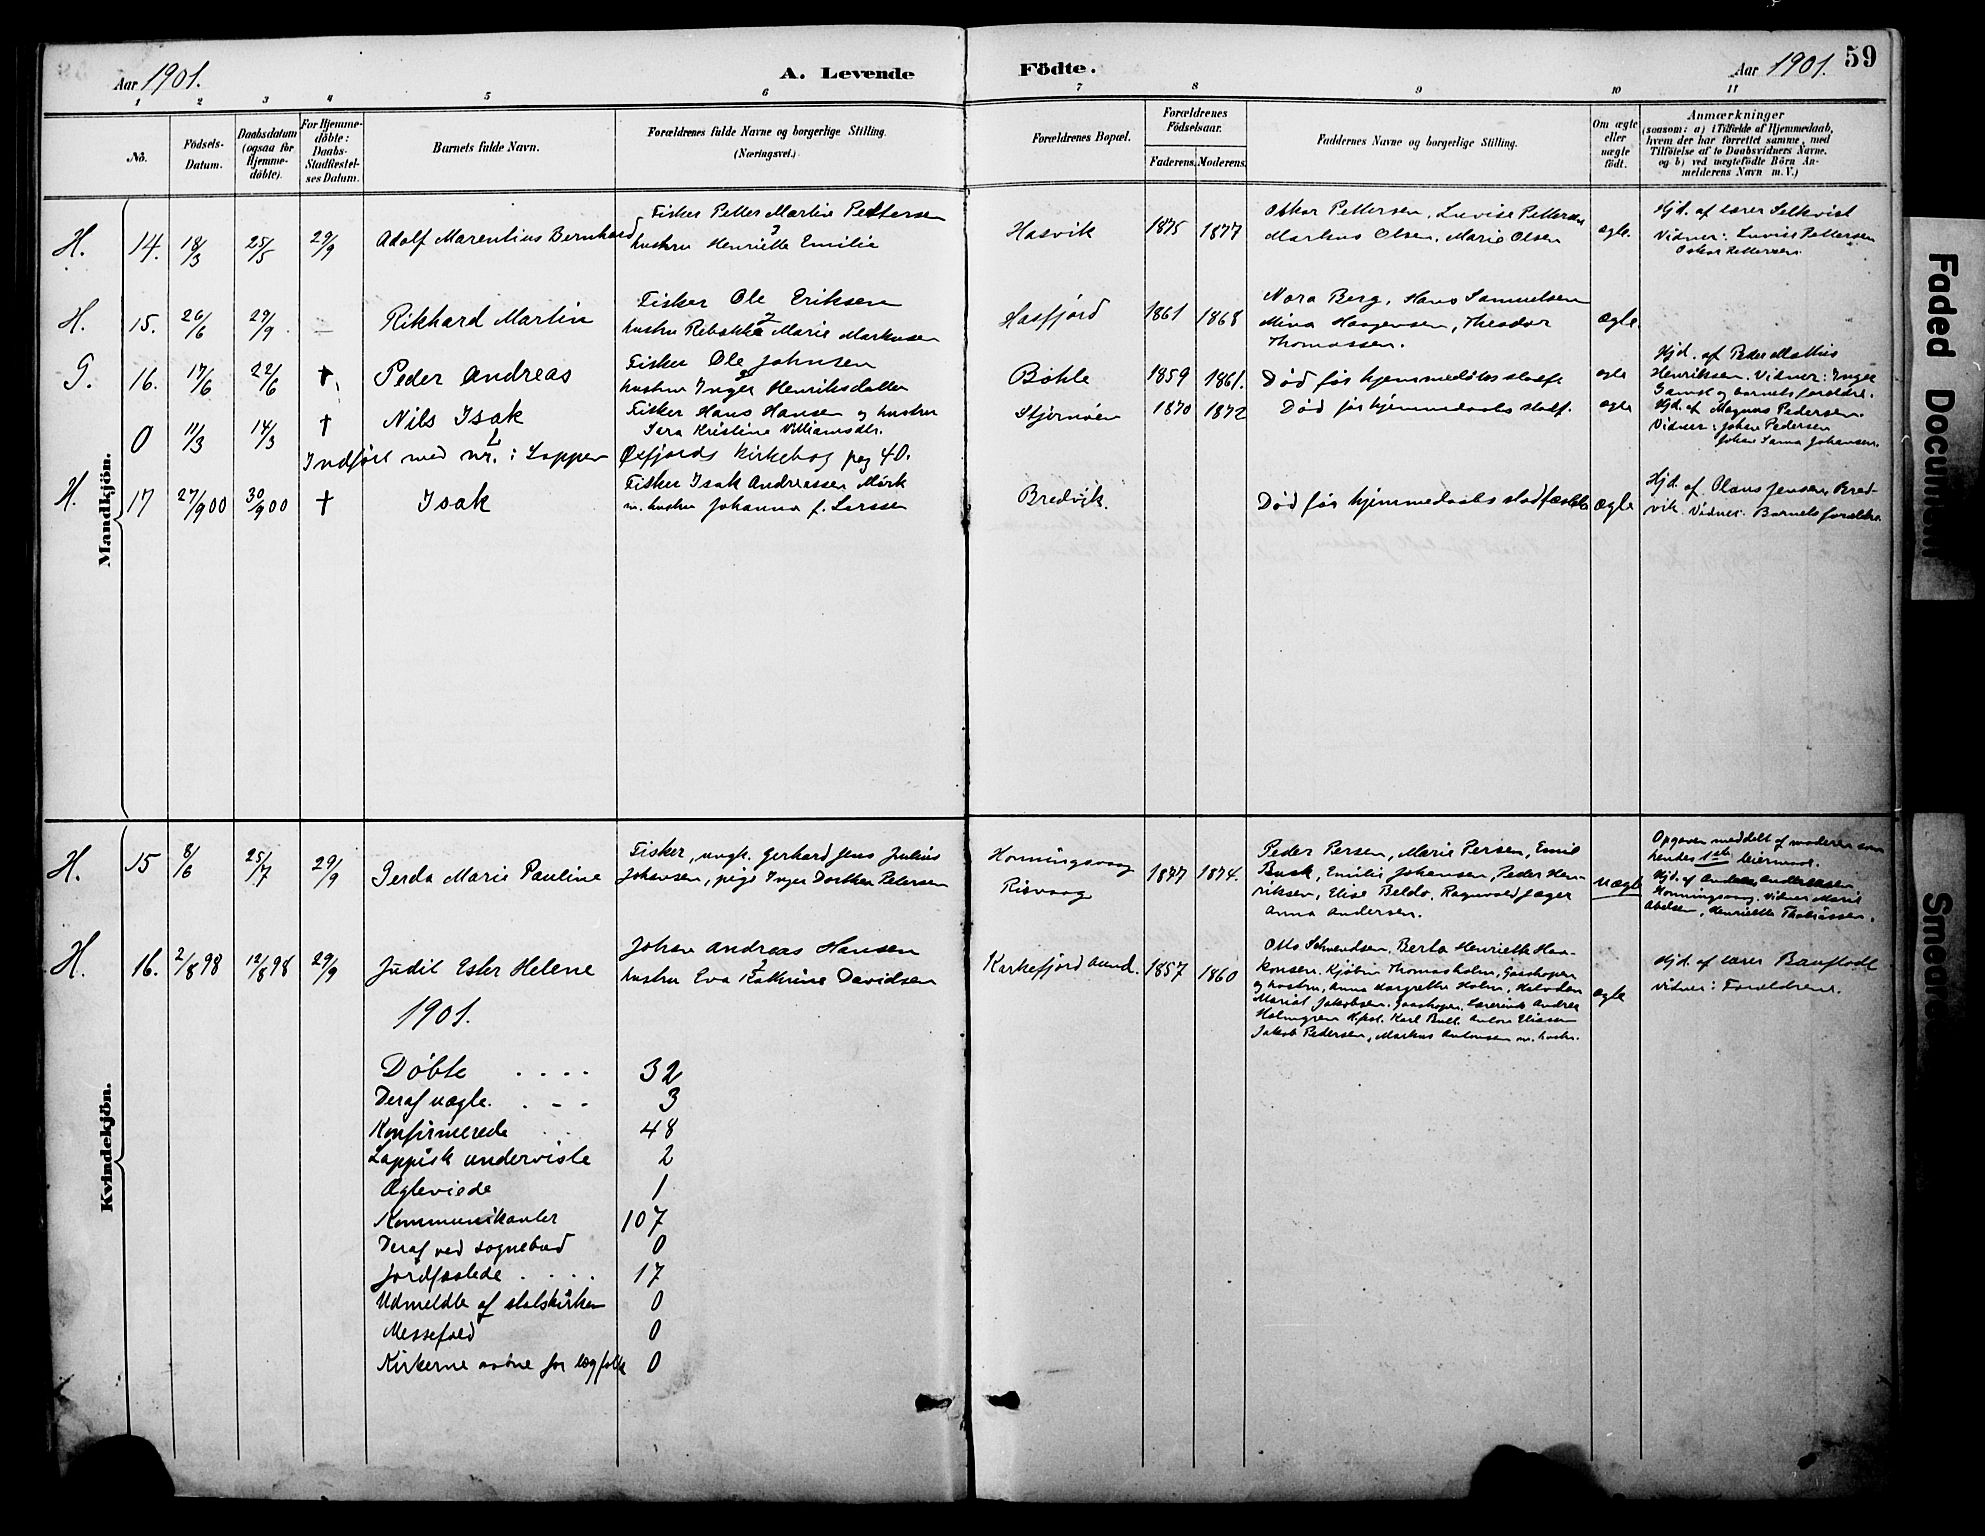 Aar 1901.
A. Levende
Födte.
Aar 1901.
59
1 2 3 4 5 6 7 8 9 10 11
Nö.
Födsels-
Datum.
Daabsdatum
(ogsaa for
Hjemme-
döbte).
For Hjemme-
döbte:
Daabs-
Stadfestel-
ses Datum.
Barnets fulde Navn.
Forældrenes fulde Navne og borgerlige Stilling.
(Næringsvei.)
Forældrenes Bopæl.
Forældrenes
Födselsaar.
Faderens. Moderens.
Faddernes Navne og borgerlige Stilling.
Om ægte
eller
uægte
födt.
Anmærkninger
(saasom: a) i Tilfælde af Hjemmedaab,
hvem der har forrettet samme, med
Tilföielse af to Daabsvidners Navne,
og b) ved uægtefödte Börn An-
melderens Navn m. V.)
Mandkjön.
H. 14. 18/3 25/5 29/9 Adolf Marentius Bernhard
Fisker Petter Martin Pettersen
hustru Henriette Emilie
Hasvik 1875 1877
Oskar Pettersen, Luvise Pettersen
Markus Olsen, Marie Olsen
ægte.
Hjd. af lærer Selkvist
Vidner: Luvise Pettersen
Oskar Pettersen
H. 15. 26/6 29/9 — Rikhard Martin
Fisker Ole Eriksen
hustru Rebekka Marie Markusen
Hasfjord 1861 1868
Nora Berg, Hans Samuelsen
Mina Haagensen, Theodor
Thomassen.
Ægte
G. 16. 17/6 22/6 † Peder Andreas
Fisker Ole Johnsen
hustru Inger Henriksdatter
Böhle 1859 1861.
Död för hjemmedöbts stadf
ægte
Hjd. af Peder Mathis
Henriksen. Vidner: Inger
Gamst og barnets foreldre.
0 11/3 14/3 † Nils Isak
Fisker Hans Hansen og hustru
Sara Kristine Villiamsdtr.
Stjernöen 1870 1872
Död før hjemmedaabs stadf.
ægte
Hjd. af Magnus Pedersen.
Vidner: Johan Pedersen
Johan Sanna Johansen.
Indført med nr. i Loppen Öxfjords kirkebog pag 40.
H. 17 27/9 00 30/9 00 † Isak
Fisker Isak Andreassen Mörk
m. hustru Johanna f. Larssen
Bredvik.
Död før hjemmedaabs stadfæstelse
ægte
Hjd. af Olaus Jensen, Bred-
vik. Vidner: Barnets forældre
Kvindekjön.
H. 15 8/6 25/7 29/9 Gerda Marie Pauline
Fisker, ungk. Gerhard Jens Julius
Johansen, pige Inger Dorthea Petersen
Honningsvaag
Risvaag
1877 1874.
Peder Persen, Marie Persen, Emil
Busk, Emilie Johansen, Peder Hen-
riksen, Elise Beldo, Ragnvald Jæger
Anna Andersen.
uægte
Opgaven meddelt af moderen som
hendes 1ste leiermaal.
Hjd. af Andreas Andreassen
Honningsvaag. Vidner Marit
Abelsen, Henriette Thobiassen.
H. 16. 2/8 98 12/8 98 29/9 Judit Ester Helene
Johan Andreas Hansen
hustru Eva Kathrine Davidsen
Karkefjord sund. 1857 1860
Otto Schwendsen, Berta Henriette Haa-
konsen, Kjöbm Thomas Holm, Gaashopen
og hustru, Anna Margrethe Holm, Halvdan
Marist Jakobsen, Gaashopen, Lærerinde Andrea
Holmgren Hfest. Karl Bull. Anton Eliassen
Jakob Pedersen, Markus Antonsen m. hustr.
ægte
Hjd. af lærer Bauflodt
Vidner: Foreldrene.
1901.
Döbte . . . . 32
Deraf uægte. . - - 3
Konfirmerede . . 48
Lappisk underviste 2
Ægteviede 1
Kommunikanter 107
Deraf ved sognebud 0
Jordfæstede . . . . 17
Udmeldte af statskirken 0
Messefald 0
Kirkerne aabne for lægfolk 0
Faded Document
Smeared